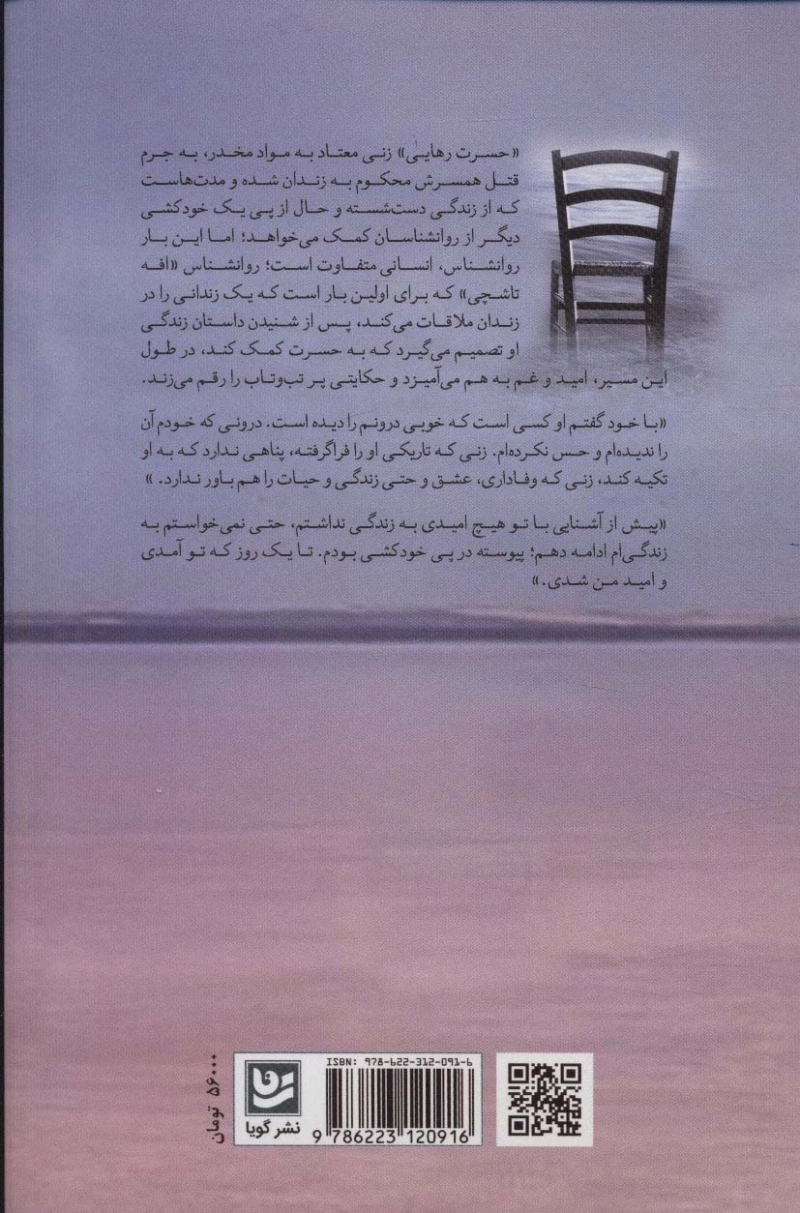 «حسرت رهایی» زنی معتاد به مواد مخدر، به جرم
قتل همسرش محکوم به زندان شده و مدت‌هاست
که از زندگی دست‌شسته و حال از پی یک خودکشی
دیگر از روانشناسان کمک می‌خواهد؛ اما این بار
روانشناس، انسانی متفاوت است؛ روانشناس «افه
تاشچی» که برای اولین بار است که یک زندانی را در
زندان ملاقات می‌کند، پس از شنیدن داستان زندگی
او تصمیم می‌گیرد که به حسرت کمک کند، در طول
این مسیر، امید و غم به هم می‌آمیزد و حکایتی پر تب‌وتاب را رقم می‌زند.
«با خود گفتم او کسی است که خوبی درونم را دیده است. درونی که خودم آن
را ندیده‌ام و حس نکرده‌ام. زنی که تاریکی او را فراگرفته، پناهی ندارد که به او
تکیه کند، زنی که وفاداری، عشق و حتی زندگی و حیات را هم باور ندارد. »
«پیش از آشنایی با تو هیچ امیدی به زندگی نداشتم، حتی نمی‌خواستم به
زندگی‌ام ادامه دهم؛ پیوسته در پی خودکشی بودم. تا یک روز که تو آمدی
و امید من شدی.»
ISBN: 978-622-312-091-6
9 786223 120916
نشر گویا
۵۶۰۰۰ تومان